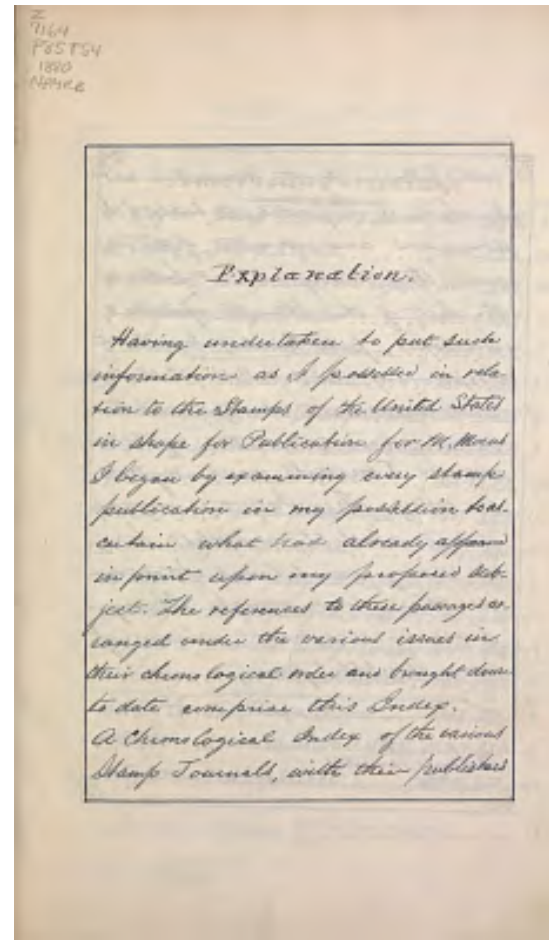 Z
7164
P85T54
1880
Explanation.
Having undertaken to put such
information as I possessed in rela-
tion to the Stamps of the United States
in shape for Publication for M. Moens
I began by examining every stamp
publication in my possession to as-
certain what had already appeared
in print upon my proposed sub-
ject. The references to these passages ar-
ranged under the various issues in
their chronological order and brought down
to date comprise this Index.
A Chronological Index of the various
Stamp Journals, with their publishers